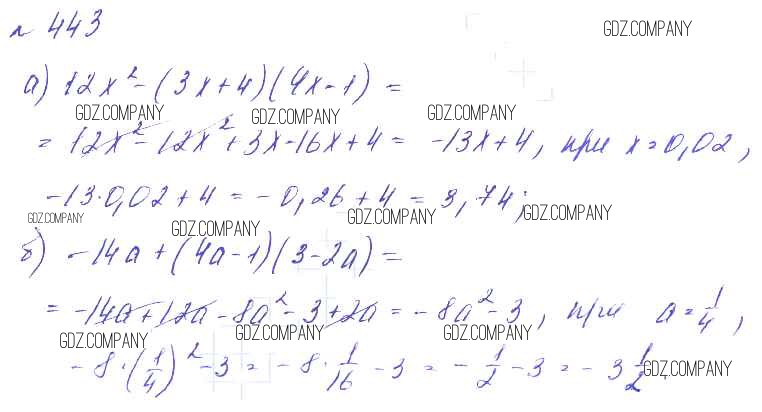 № 443
GDZ.COMPANY
а) 12x² - (3x+4)(4x-1) =
GDZ.COMPANY GDZ.COMPANY GDZ.COMPANY
= 12x² - 12x² + 3x - 16x + 4 = -13x + 4, при x = 0,02,
-13·0,02 + 4 = -0,26 + 4 = 3,74;
GDZ.COMPANY GDZ.COMPANY GDZ.COMPANY GDZ.COMPANY
б) -14a + (4a-1)(3-2a) =
= -14a + 12a - 8a² - 3 + 2a = -8a² - 3, при a = 1/4,
GDZ.COMPANY GDZ.COMPANY GDZ.COMPANY
-8·(1/4)² - 3 = -8·1/16 - 3 = -1/2 - 3 = -3 1/2
GDZ.COMPANY